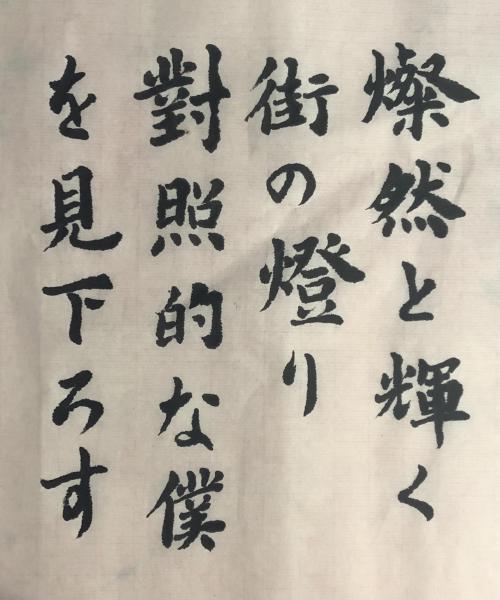 燦然と輝く
街の燈り
對照的な僕
を見下ろす